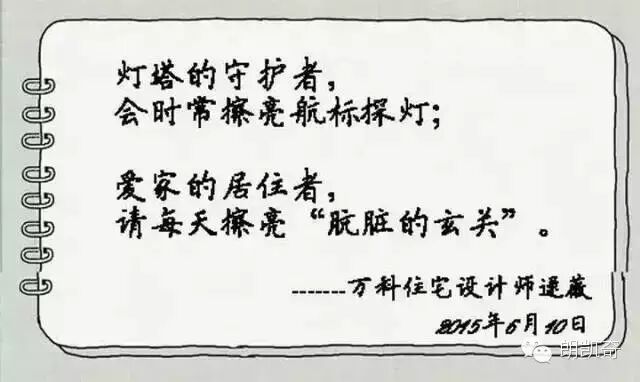 灯塔的守护者，
会时常擦亮航标探灯；
爱家的居住者，
请每天擦亮“肮脏的玄关”。
-------万科住宅设计师逯薇
2015年6月10日
朗凯奇